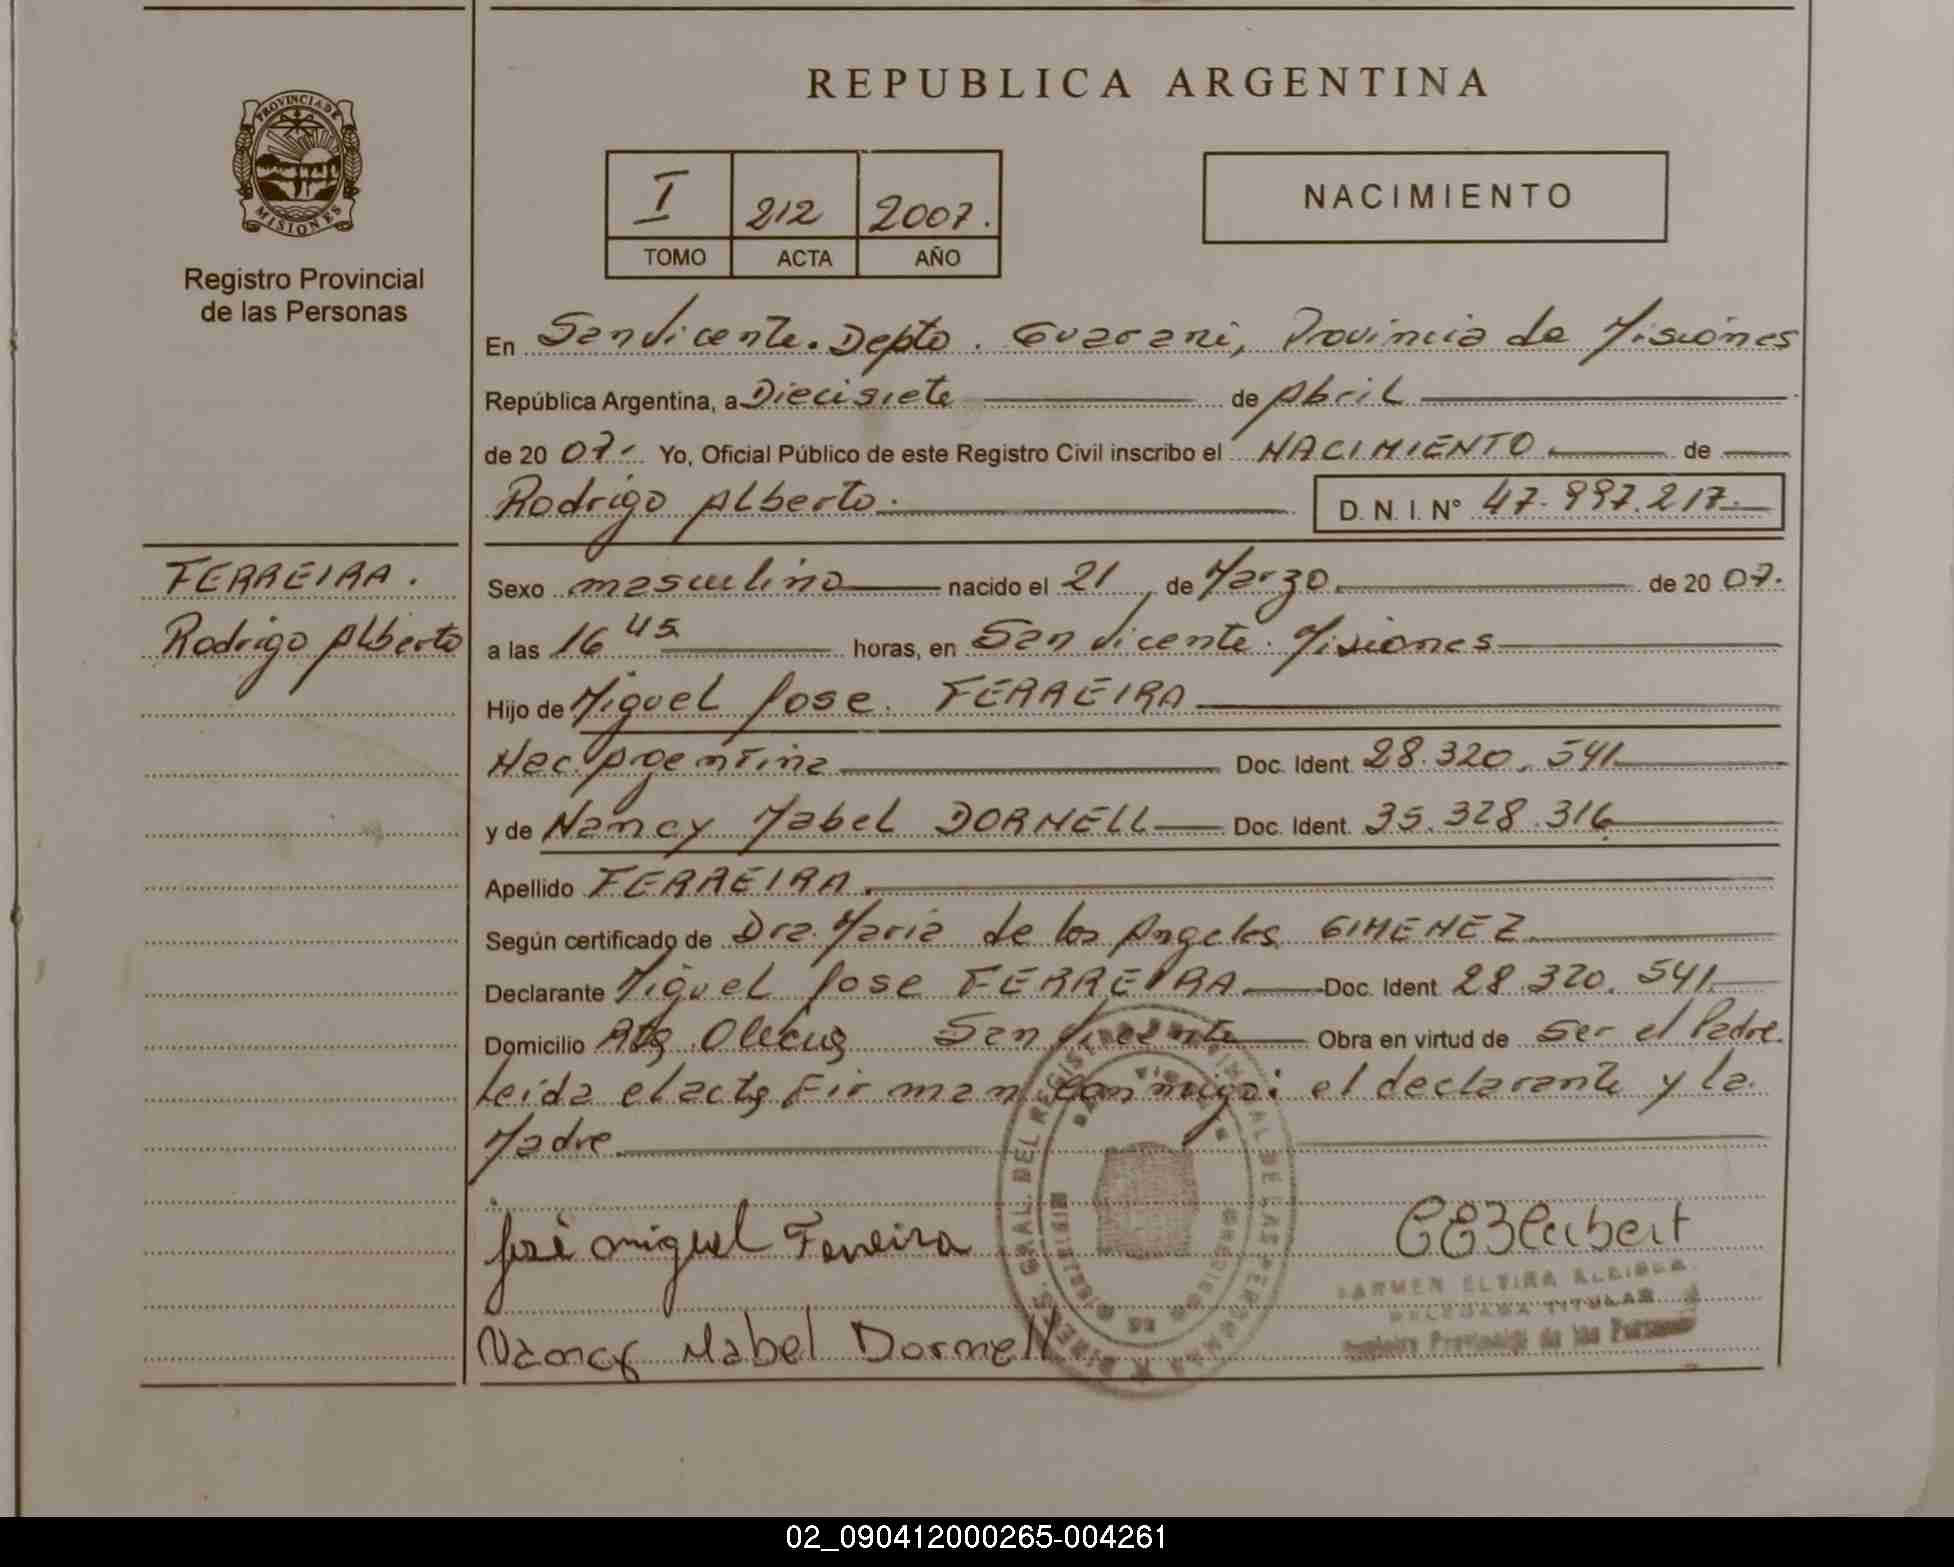 PROVINCIA DE
MISIONES
Registro Provincial
de las Personas
FERREIRA.
Rodrigo Alberto
REPUBLICA ARGENTINA
I 212 2007.
TOMO ACTA AÑO
NACIMIENTO
En San Vicente. Depto. Guarani, Provincia de Misiones
República Argentina, a Diecisiete de Abril
de 20 07. Yo, Oficial Público de este Registro Civil inscribo el NACIMIENTO de
Rodrigo Alberto. D. N. I. N° 47.997.217.
Sexo masculino nacido el 21 de Marzo de 20 07.
a las 16 45 horas, en San Vicente. Misiones
Hijo de Miguel Jose FERREIRA
Nac. Argentina Doc. Ident. 28.320.541
y de Nancy Mabel DORNELL Doc. Ident. 35.328.316
Apellido FERREIRA.
Según certificado de Dra. Maria de los Angeles GIMENEZ
Declarante Miguel Jose FERREIRA Doc. Ident. 28.320.541
Domicilio San Vicente Obra en virtud de Ser el Padre.
Leida el acta Firman conmigo: el declarante y la
Madre
José miguel Ferreira
Nancy Mabel Dornell
CARMEN ELVIRA
DELEGADA TITULAR
Registro Provincial de las Personas
02_090412000265-004261